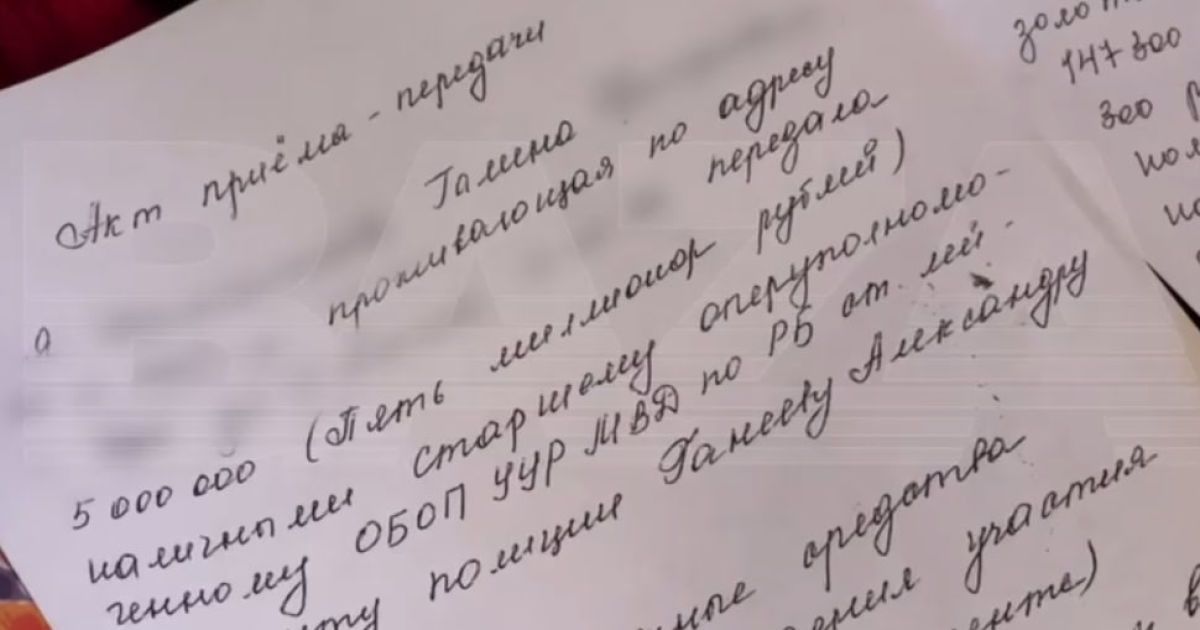 Акт приёма - передачи
Галина
а проживающая по адресу
передала
5 000 000 (Пять миллионов рублей)
наличными старшему оперуполномо-
ченному ОБОП УУР МВД по РБ ст. лей-
полиции Ганееву Александру
средства
участия
147 300
300
BAZA